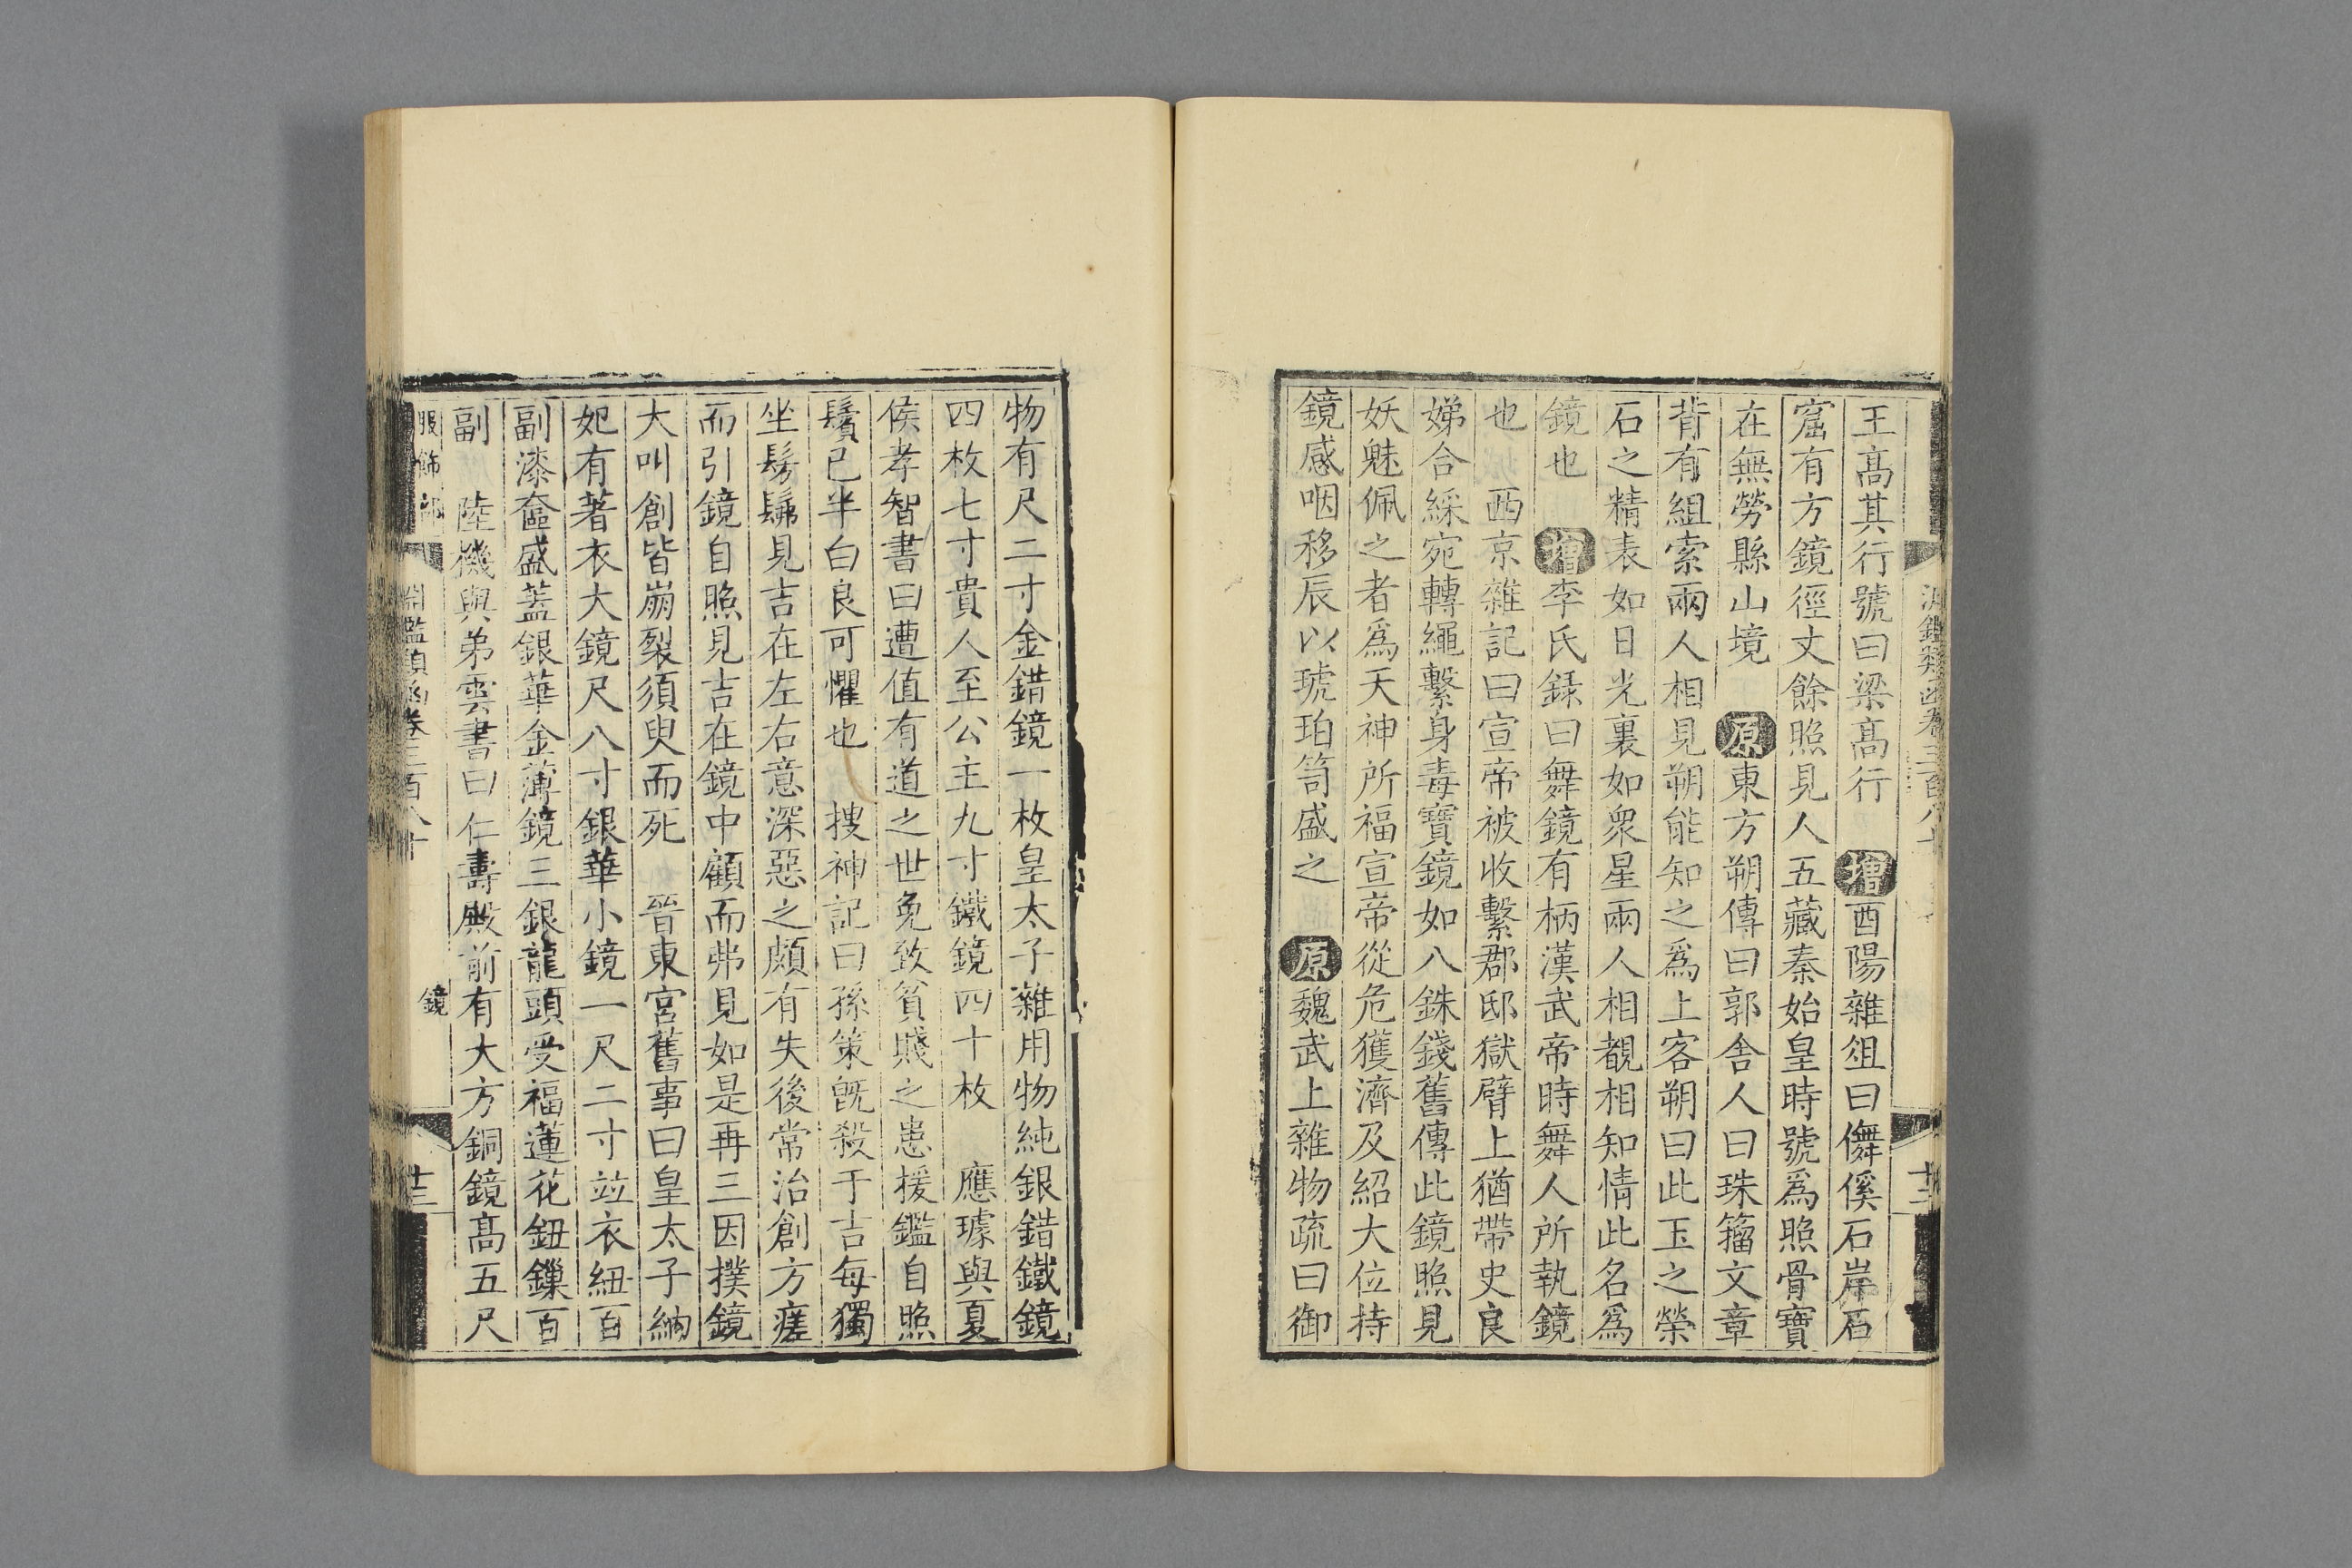 淵鑑類函卷三百八十
十二
王高其行號曰梁高行 增酉陽雜俎曰儛溪石岸石
窟有方鏡徑丈餘照見人五藏秦始皇時號爲照骨寶
在無勞縣山境 原東方朔傳曰郭舍人曰珠籀文章
背有組索兩人相見朔能知之爲上客朔曰此玉之榮
石之精表如日光裏如衆星兩人相覩相知情此名爲
鏡也 增李氏録曰舞鏡有柄漢武帝時舞人所執鏡
也 西京雜記曰宣帝被收繫郡邸獄臂上猶帶史良
娣合綵宛轉繩繫身毒寶鏡如八銖錢舊傳此鏡照見
妖魅佩之者爲天神所福宣帝從危獲濟及紹大位持
鏡感咽移辰以琥珀笥盛之 原魏武上雜物疏曰御
物有尺二寸金錯鏡一枚皇太子雜用物純銀錯鐵鏡
四枚七寸貴人至公主九寸鐵鏡四十枚 應璩與夏
侯孝智書曰遭值有道之世免致貧賤之患援鑑自照
鬢已半白良可懼也 搜神記曰孫策既殺于吉每獨
坐髣髴見吉在左右意深惡之頗有失後常治創方瘥
而引鏡自照見吉在鏡中顧而弗見如是再三因撲鏡
大叫創皆崩裂須臾而死 晉東宮舊事曰皇太子納
妃有著衣大鏡尺八寸銀華小鏡一尺二寸竝衣紐百
副漆奩盛蓋銀華金薄鏡三銀龍頭受福蓮花鈕鏁百
副 陸機與弟雲書曰仁壽殿前有大方銅鏡高五尺
服飾部 淵鑑類函卷三百八十
鏡
十三